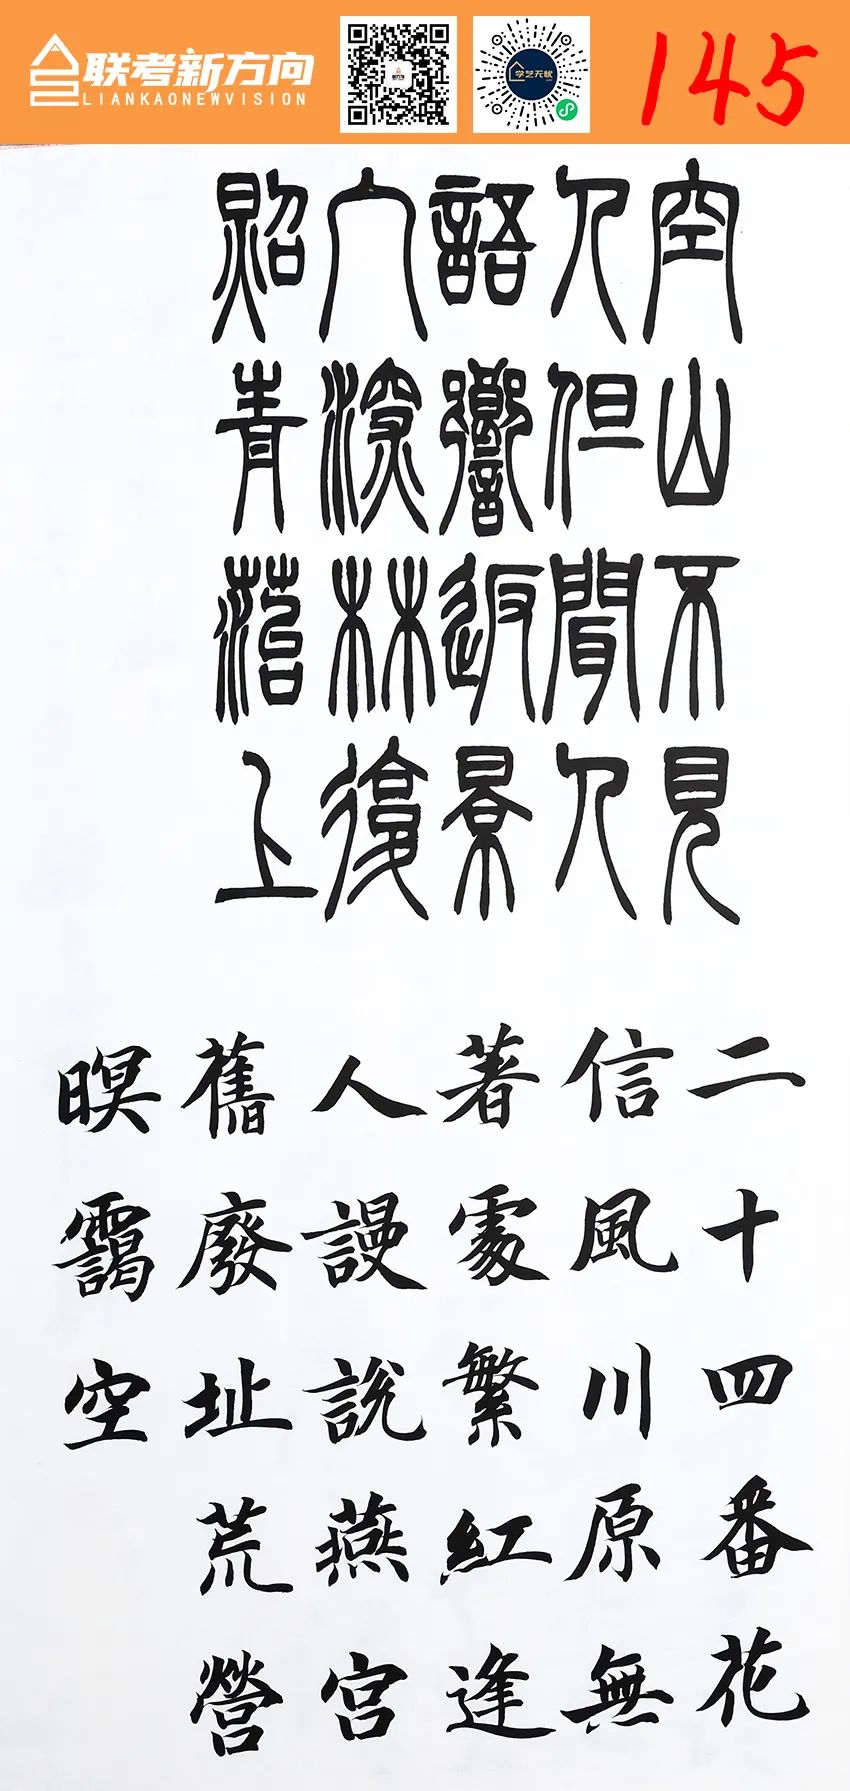 联考新方向
LIANKAONEWVISION
学艺无忧
145
空山不見
人但聞人
語響返景
入深林復
照青菭上
二十四番花
信風川原無
著處繁紅逢
人謾說燕宮
舊廢址荒營
暝靄空